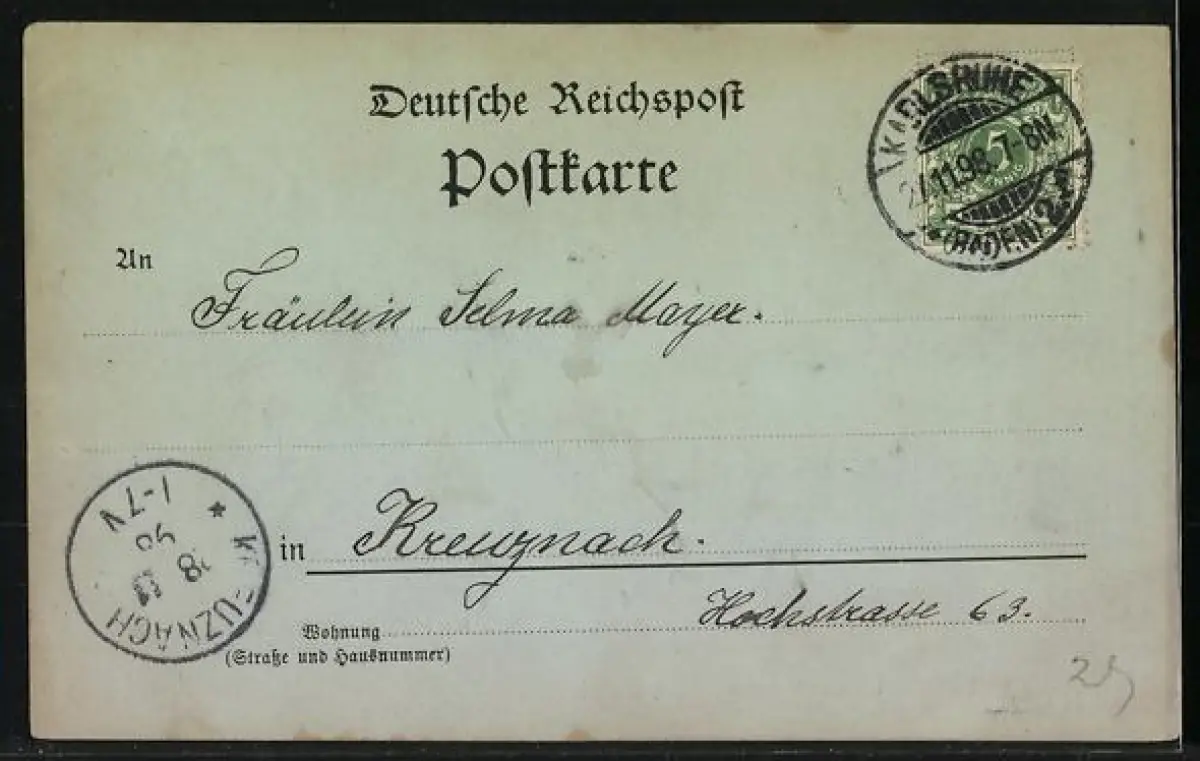 Deutsche Reichspost
Postkarte
KARLSRUHE
11.98. 7-8N.
(BADEN) 2.
5
An
Fräulein Selma Mayer.
in Kreuznach.
Hochstrasse 63.
Wohnung
(Straße und Hausnummer)
KREUZNACH
1-7N